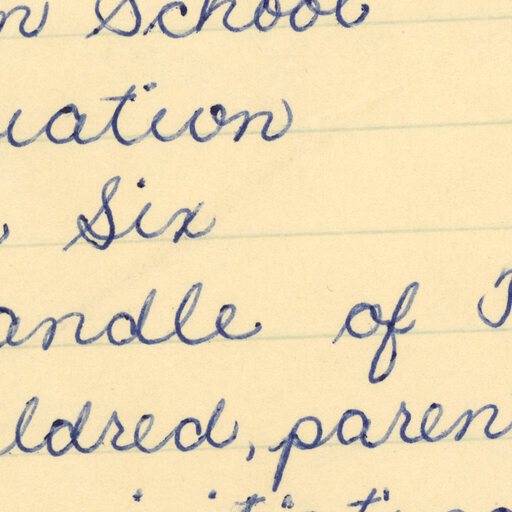 n School
uation
Six
andle of
ildred, paren